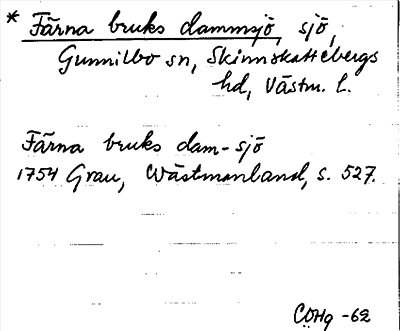 * Färna bruks dammsjö, sjö,
Gunnilbo sn, Skinnskattebergs
hd, Västm. l.
Färna bruks dam-sjö
1754 Grau, Wästmanland, s. 527.
COHg -62